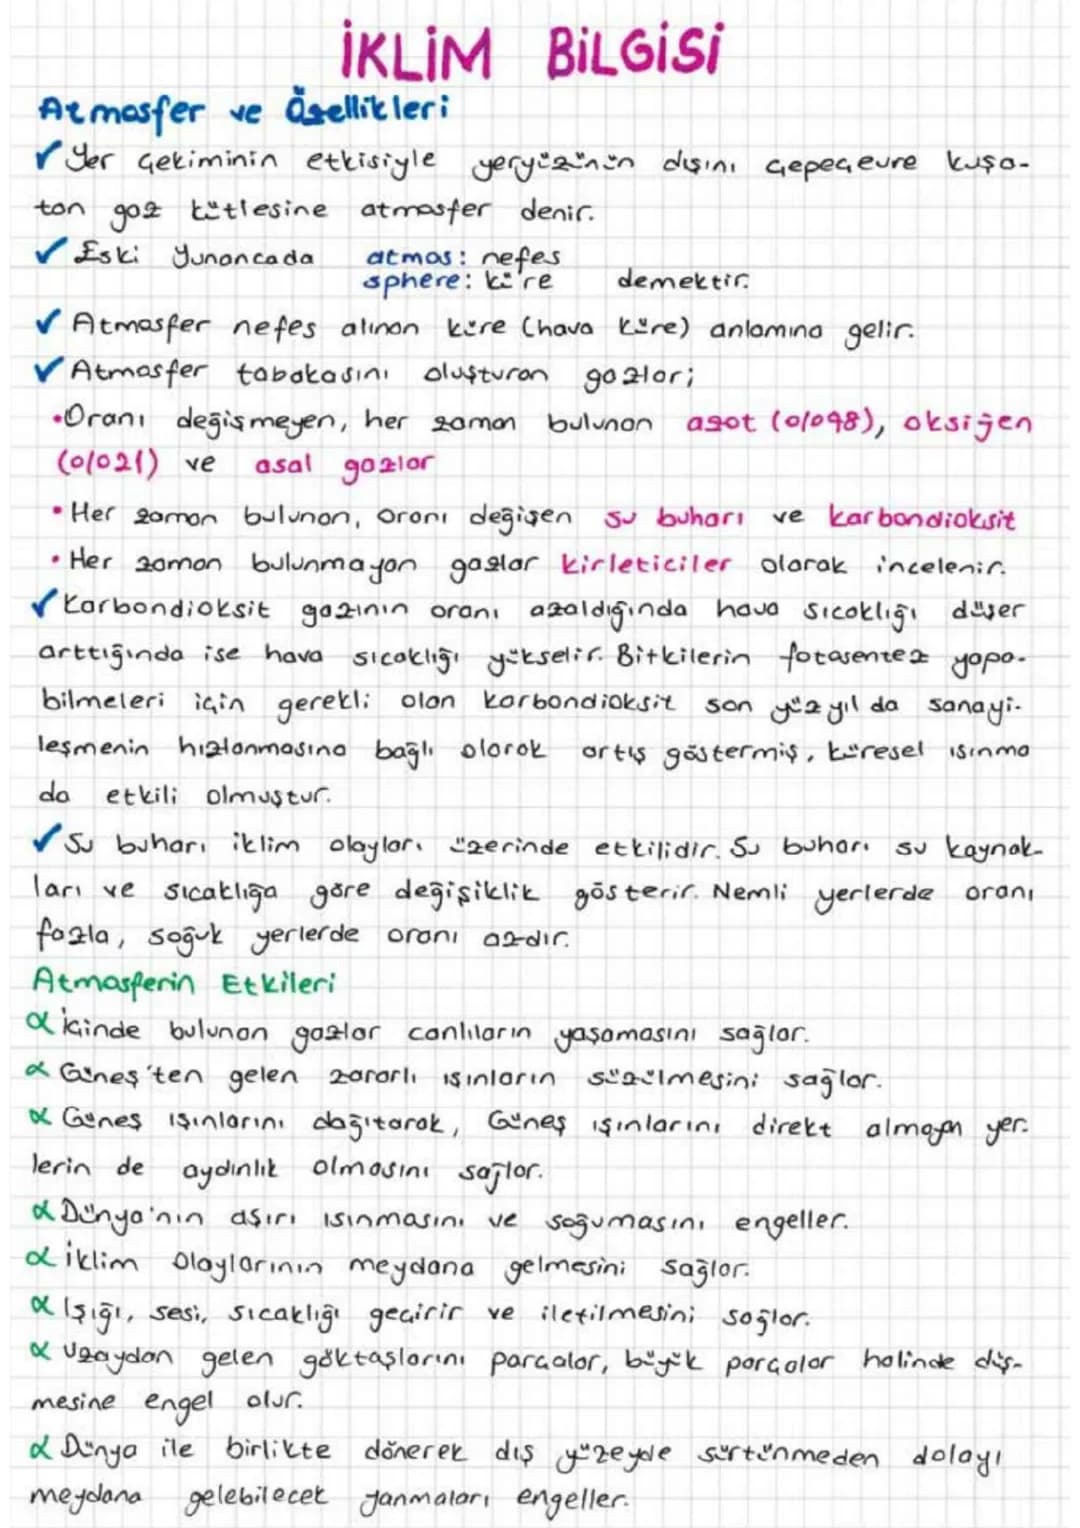 İKLİM BİLGİSİ
Atmosfer ve Özellikleri
✓ Yer çekiminin etkisiyle yeryüzünün dışını çepeçevre kuşa-
tan gaz kütlesine atmosfer denir.
✓ Eski Yunancada atmos: nefes
sphere: küre demektir.
✓ Atmosfer nefes alınan küre (hava küre) anlamına gelir.
✓ Atmosfer tabakasını oluşturan gazlar;
• Oranı değişmeyen, her zaman bulunan azot (%98), oksijen
(%21) ve asal gazlar
• Her zaman bulunan, oranı değişen su buharı ve karbondioksit
• Her zaman bulunmayan gazlar kirleticiler olarak incelenir.
✓ Karbondioksit gazının oranı azaldığında hava sıcaklığı düşer
arttığında ise hava sıcaklığı yükselir. Bitkilerin fotosentez yapa-
bilmeleri için gerekli olan karbondioksit son yüzyıl da sanayi-
leşmenin hızlanmasına bağlı olarak artış göstermiş, küresel ısınma
da etkili olmuştur.
✓ Su buharı iklim olayları üzerinde etkilidir. Su buharı su kaynak-
ları ve sıcaklığa göre değişiklik gösterir. Nemli yerlerde oranı
fazla, soğuk yerlerde oranı azdır.
Atmosferin Etkileri
α İçinde bulunan gazlar canlıların yaşamasını sağlar.
α Güneş'ten gelen zararlı ışınların süzülmesini sağlar.
α Güneş ışınlarını dağıtarak, Güneş ışınlarını direkt almayan yer-
lerin de aydınlık olmasını sağlar.
α Dünya'nın aşırı ısınmasını ve soğumasını engeller.
α İklim olaylarının meydana gelmesini sağlar.
α Işığı, sesi, sıcaklığı geçirir ve iletilmesini sağlar.
α Uzaydan gelen göktaşlarını parçalar, büyük parçalar halinde düş-
mesine engel olur.
α Dünya ile birlikte dönerek dış yüzeyde sürtünmeden dolayı
meydana gelebilecek yanmaları engeller.